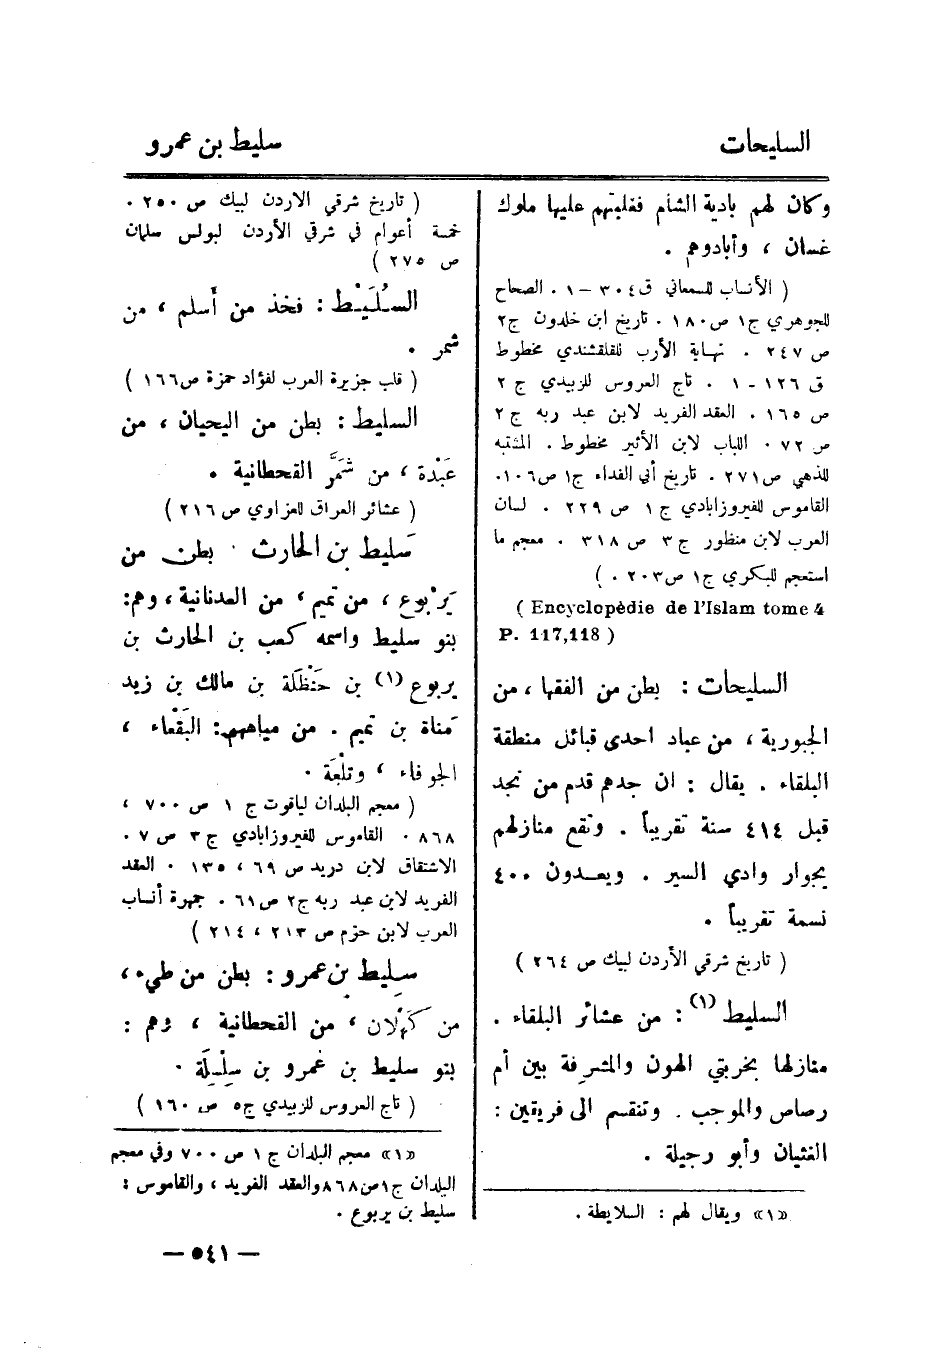 السليحات
سليط بن عمرو
وكان لهم بادية الشأم فغلبتهم عليها ملوك
غسان ، وأبادوهم .
( الأنساب للسمعاني ق ٣٠٤ – ١ . الصحاح
للجوهري ج١ ص١٨٠ . تاريخ ابن خلدون ج٢
ص ٢٤٧ . نهاية الأرب للقلقشندي مخطوط
ق ١٢٦ – ١ . تاج العروس للزبيدي ج ٢
ص ١٦٥ . العقد الفريد لابن عبد ربه ج ٢
ص ٧٢ . اللباب لابن الأثير مخطوط . المشتبه
للذهبي ص٢٧١ . تاريخ أبي الفداء ج١ ص١٠٦.
القاموس للفيروزابادي ج ١ ص ٢٢٩ . لسان
العرب لابن منظور ج ٣ ص ٣١٨ . معجم ما
استعجم للبكري ج١ ص٢٠٣ . )
( Encyclopèdie de l'Islam tome 4
P. 117,118 )
السليحات : بطن من الفقها ، من
الجبورية ، من عباد احدى قبائل منطقة
البلقاء . يقال : ان جدهم قدم من نجد
قبل ٤١٤ سنة تقريباً . وتقع منازلهم
بجوار وادي السير . ويعدون ٤٠٠
نسمة تقريباً .
( تاريخ شرقي الأردن لبيك ص ٢٦٤ )
السليط (١) : من عشائر البلقاء .
منازلها بخربتي الهون والمشرفة بين أم
رصاص والموجب . وتنقسم الى فريقين :
الفثيان وأبو رجيلة .
«١» ويقال لهم : السلايطة .
( تاريخ شرقي الاردن لبيك ص ٢٥٠ .
خمسة أعوام في شرقي الأردن لبولس سلمان
ص ٢٧٥ )
السُلَيْط : فخذ من أسلم ، من
شمر .
( قلب جزيرة العرب لفؤاد حمزة ص١٦٦ )
السليط : بطن من اليحيان ، من
عَبْدة ، من شَمَّر القحطانية .
( عشائر العراق للعزاوي ص ٢١٦ )
سَليط بن الحارث . بطن من
يَرْبوع ، من تميم ، من العدنانية ، وهم:
بنو سليط واسمه كعب بن الحارث بن
يربوع (١) بن حَنْظَلة بن مالك بن زيد
مَناة بن تميم . من مياههم: البَقْعاء ،
الجوفاء ، وتلْعَة .
( معجم البلدان لياقوت ج ١ ص ٧٠٠ ،
٨٦٨ . القاموس للفيروزابادي ج ٣ ص ٧ .
الاشتقاق لابن دريد ص ٦٩ ، ١٣٥ . العقد
الفريد لابن عبد ربه ج٢ ص٦١ . جمهرة أنساب
العرب لابن حزم ص ٢١٣ ، ٢١٤ )
سليط بن عمرو : بطن من طيء ،
من كَهْلان ، من القحطانية ، وهم :
بنو سليط بن عمرو بن سِلْسِلَة .
( تاج العروس للزبيدي ج٥ ص ١٦٠ )
«١» معجم البلدان ج ١ ص ٧٠٠ وفي معجم
البلدان ج١ص٨٦٨والعقد الفريد ، والقاموس :
سليط بن يربوع .
— ٥٤١ —